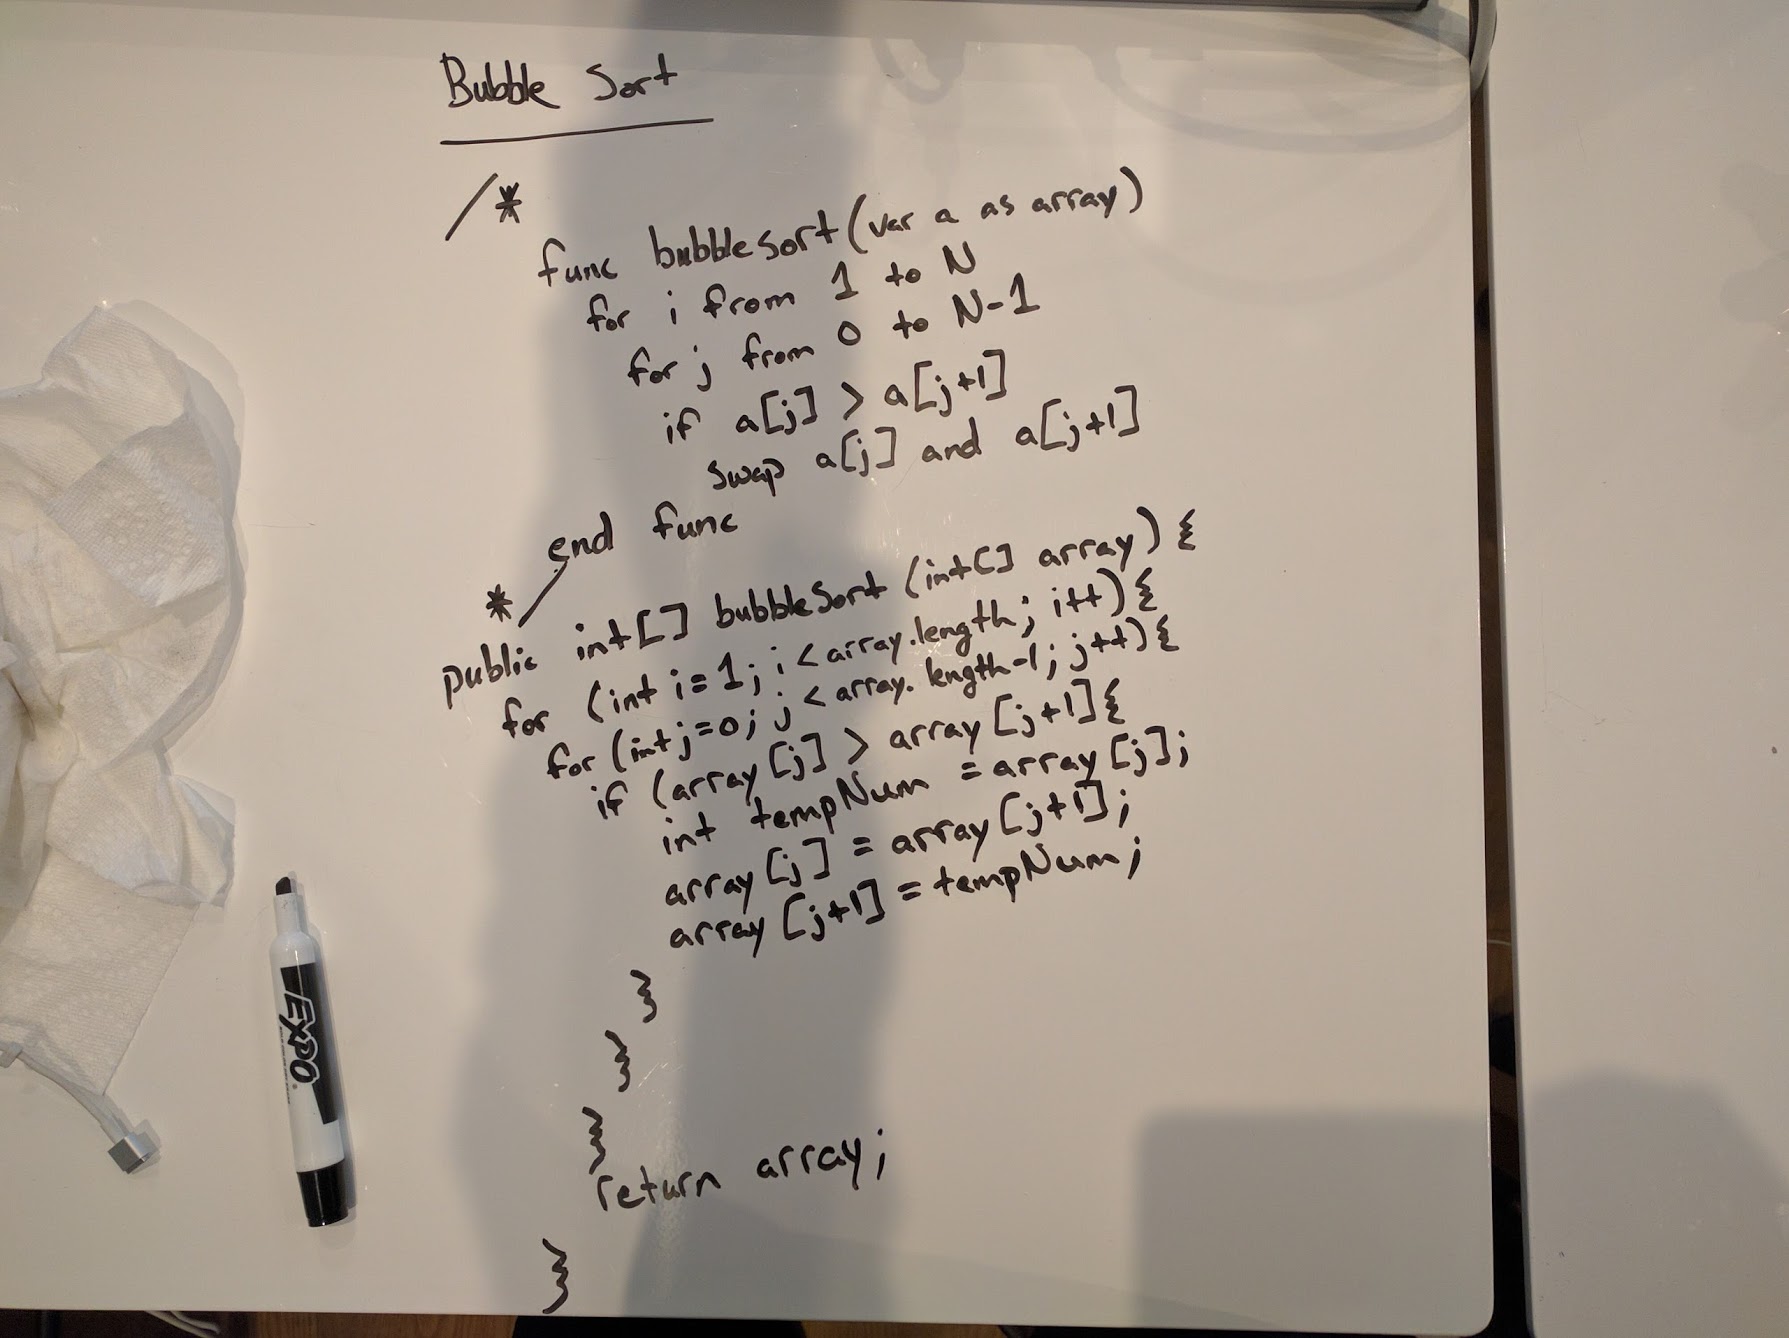 Bubble Sort
/*
func bubblesort(var a as array)
for i from 1 to N
for j from 0 to N-1
if a[j] > a[j+1]
swap a[j] and a[j+1]
end func
*/
public int[] bubbleSort (int[] array) {
for (int i=1; i < array.length; i++){
for (int j=0; j < array.length-1; j++){
if (array[j] > array[j+1]{
int tempNum = array[j];
array[j] = array[j+1];
array[j+1] = tempNum;
}
}
}
return array;
}
EXPO